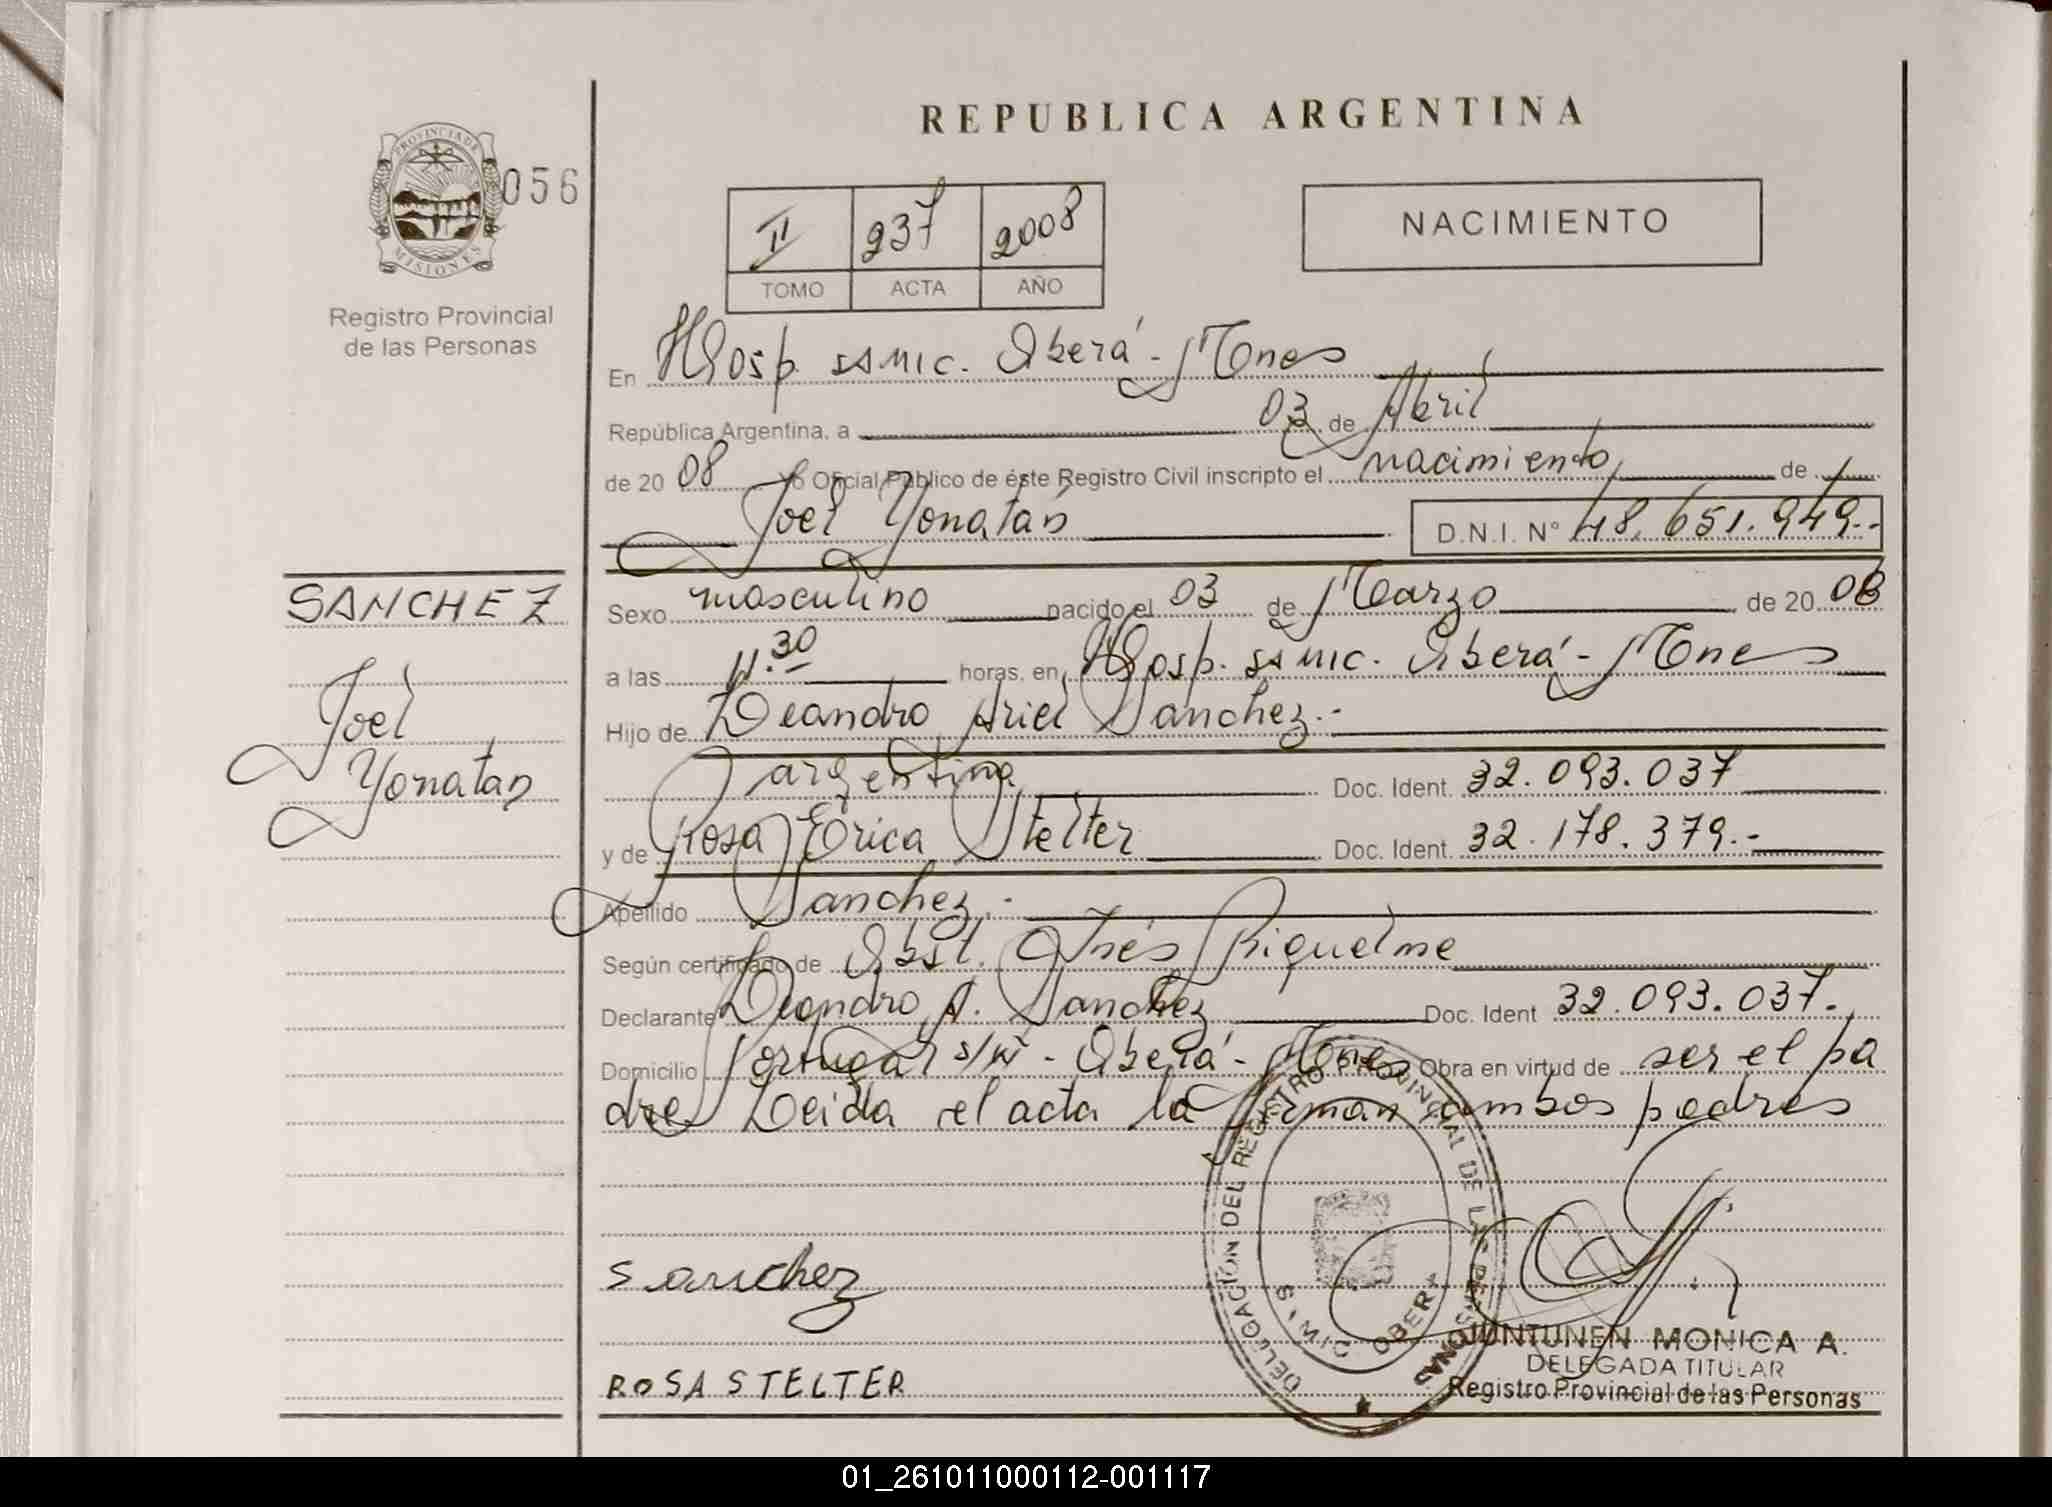 REPUBLICA ARGENTINA
PROVINCIA DE
MISIONES
056
Registro Provincial
de las Personas
II 237 2008
TOMO ACTA AÑO
NACIMIENTO
En Hosp. SAMIC. Oberá - Mnes
República Argentina, a 03 de Abril
de 20 08 Yo Oficial Público de éste Registro Civil inscripto el nacimiento de
Joel Yonatan D.N.I. N° 48.651.949.-
SANCHEZ
Joel
Yonatan
Sexo masculino nacido el 03 de Marzo de 20 08
a las 11.30 horas, en Hosp. SAMIC. Oberá - Mnes
Hijo de Leandro Ariel Sanchez.-
argentina Doc. Ident. 32.093.037
y de Rosa Erica Stelter Doc. Ident. 32.178.379.-
Apellido Sanchez.-
Según certificado de Obst. Inés Riquelme
Declarante Leandro A. Sanchez Doc. Ident 32.093.037.
Domicilio Portugal s/n° - Oberá - Mnes Obra en virtud de ser el pa
dre Leida el acta la firman ambos padres
Sanchez
ROSA STELTER
DELEGACIÓN DEL REGISTRO PROVINCIAL DE LAS PERSONAS
OBERÁ
JUNTUNEN MONICA A.
DELEGADA TITULAR
Registro Provincial de las Personas
01_261011000112-001117